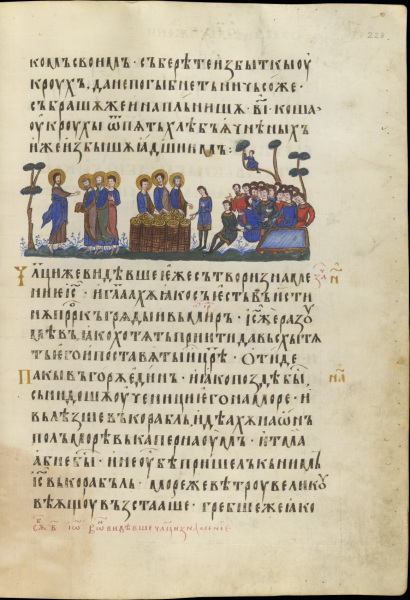 комъ своимъ · съберѣте избыткы оу
кроухъ, да не погыбнетъ ничьсоже ·
събрашѧ же и наплънишѧ · в҃і · коша
оукроухы ѿ пѧтъ хлѣбъ ѧчнѣныхъ
иже избышѧ ꙗдшиимъ :
Члци же видѣвше еже сътвори знаме
ние і҃с · и гл҃аахѫ ꙗко съ естъ въ исти
нѫ прр҃къ грѧды въ миръ · і҃с же разоу
мѣвъ ꙗко хотѧтъ приити да въсхытѧ
тъ его и поставѧтъ и цр҃ѣ · отиде
Пакы въ горѫ единъ · и ꙗко поздѣ бы
сънидошѫ оученици его на море · и
вълѣзше въ корабль идѣахѫ на онъ
полъ морѣ въ капернаоумъ · и тма
абие бы · и не оу бѣ пришелъ къ нимъ
і҃с въ корабль · море же вѣтроу великоу
вѣѫщоу въстааше · гребше же ꙗко